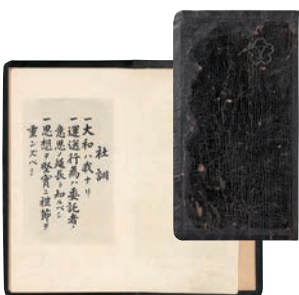 社訓
一大和ハ我ナリ
一運送行為ハ委託者ノ
意思ノ延長ト知ルベシ
一思想ヲ堅實ニ禮節ヲ
重ンズベシ